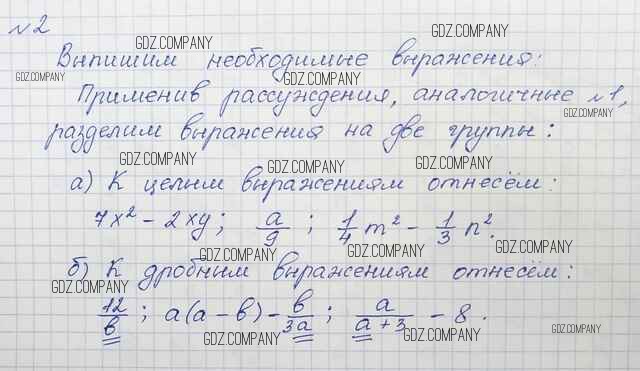 №2
GDZ.COMPANY
GDZ.COMPANY
Выпишим необходимые выражения:
GDZ.COMPANY
GDZ.COMPANY
Применив рассуждения, аналогичные №1,
GDZ.COMPANY
разделим выражения на две группы:
GDZ.COMPANY
GDZ.COMPANY
GDZ.COMPANY
а) К целым выражениям отнесём:
7x² - 2xy; a/9; 1/4 m² - 1/3 n².
GDZ.COMPANY
GDZ.COMPANY
GDZ.COMPANY
б) К дробным выражениям отнесём:
GDZ.COMPANY
12/b; a(a - b) - b/3a; a/a+3 - 8.
GDZ.COMPANY
GDZ.COMPANY
GDZ.COMPANY